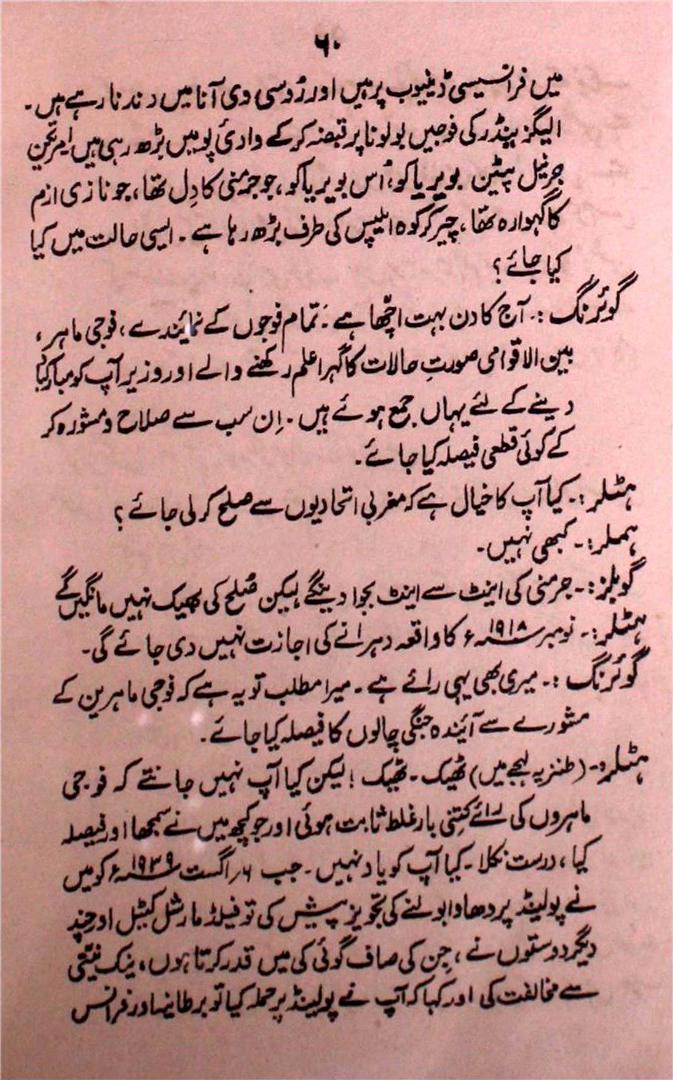 ۶۰
میں فرانسیسی ڈینیوب پر ہیں اور رُوسی وی آنا میں دندنا رہے ہیں۔
الیگزینڈر کی فوجیں بولونا پر قبضہ کر کے وادئ پو میں بڑھ رہی ہیں امریکن
جرنیل پیٹن بویریا کو، اُس بویریا کو، جو جرمنی کا دِل تھا، جو نازی ازم
کا گہوارہ تھا، چیر کر کوہ ایلپس کی طرف بڑھ رہا ہے۔ ایسی حالت میں کیا
کیا جائے؟
گوئرنگ :۔ آج کا دن بہت اچھّا ہے۔ تمام فوجوں کے نمایندے، فوجی ماہر،
بین الاقوامی صورتِ حالات کا گہرا علم رکھنے والے اور وزیر آپ کو مبارکباد
دینے کے لئے یہاں جمع ہوئے ہیں۔ اِن سب سے صلاح و مشورہ کر
کے کوئی قطعی فیصلہ کیا جائے۔
ہٹلر :۔ کیا آپ کا خیال ہے کہ مغربی اتحادیوں سے صلح کر لی جائے؟
ہملر :۔ کبھی نہیں۔
گوبلز :۔ جرمنی کی اینٹ سے اینٹ بجوا دینگے لیکن صُلح کی بھیک نہیں مانگیں گے
ہٹلر :۔ نومبر ۱۹۱۸ء کا واقعہ دہرانے کی اجازت نہیں دی جائے گی۔
گوئرنگ :۔ میری بھی یہی رائے ہے۔ میرا مطلب تو یہ ہے کہ فوجی ماہرین کے
مشورے سے آئیندہ جنگی چالوں کا فیصلہ کیا جائے۔
ہٹلر :۔ (طنزیہ لہجے میں) ٹھیک۔ ٹھیک! لیکن کیا آپ نہیں جانتے کہ فوجی
ماہروں کی رائے کِتنی بار غلط ثابت ہوئی اور جو کچھ میں نے سمجھا اور فیصلہ
کیا، درست نکلا۔ کیا آپ کو یاد نہیں۔ جب ۶؍اگست ۱۹۳۹ء کو میں
نے پولینڈ پر دھاوا بولنے کی تجویز پیش کی تو فیلڈ مارشل کیٹل اور چند
دیگر دوستوں نے، جِن کی صاف گوئی کی میں قدر کرتا ہوں، نیک نیّتی
سے مخالفت کی اور کہا کہ آپ نے پولینڈ پر حملہ کیا تو برطانیہ اور فرانس